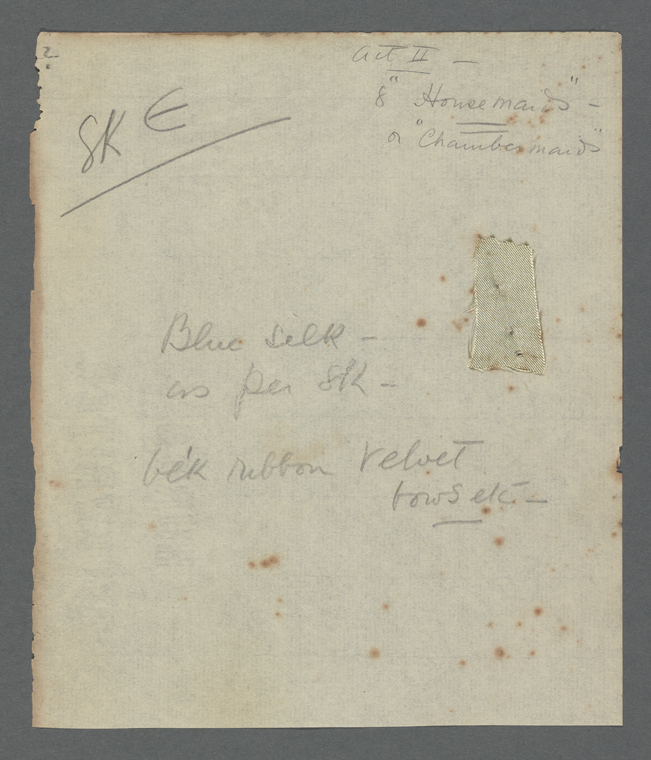 2
Act II —
8 "Housemaids" —
or "Chambermaids"
SK E
Blue silk —
as per SK —
bck ribbon velvet
bows etc —